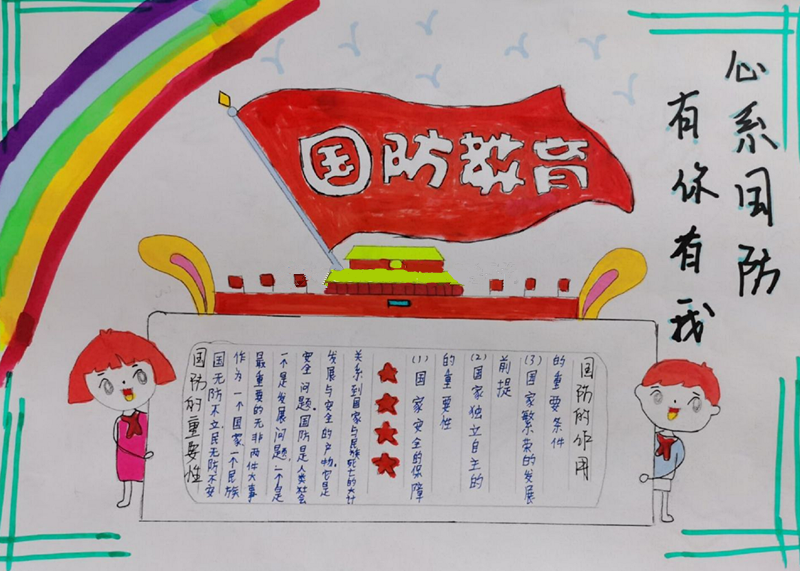 国防教育
心系国防
有你有我
国防的重要性
国无防不立民无防不安
作为一个国家一个民族
最重要的无非两件大事
不是发展问题.一个是
安全问题.国防是人类社会
发展与安全的产物.它是
关系到国家与民族死亡的大计
(1)国家安全的保障
的重要性
(2)国家独立自主的
前提
(3)国家繁荣的发展
的重要条件
国防的作用